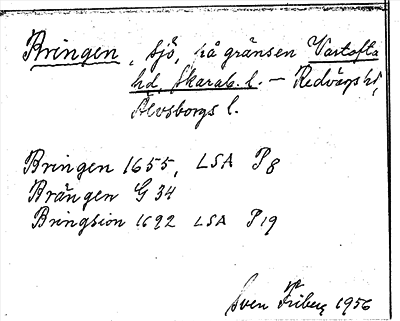 Bringen, sjö, på gränsen Vartofta
hd, Skarab. l. – Redvägs hd,
Älvsborgs l.
Bringen 1655, LSA P8
Brängen G 34
Bringsion 1692 LSA P19
Sven Friberg 1956